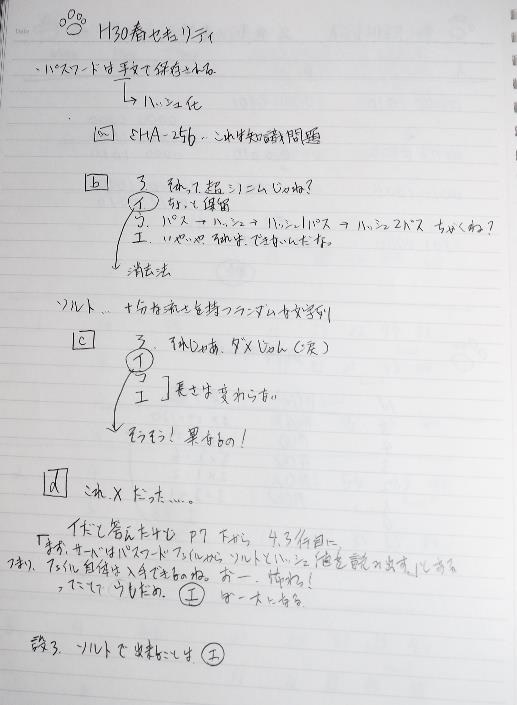 H30春セキュリティ
・パスワードは平文で保存される
→ハッシュ化
a SHA-256...これは知識問題
b ア それって、超シニムじゃね?
イ ちょっと保留
ウ. パス → ハッシュ → ハッシュ1パス → ハッシュ2パス ちがくね?
エ. いやいや、それは、できないんだな。
消去法
ソルト... 十分な長さを持つランダムな文字列
c ア. それじゃあ、ダメじゃん(涙)
イ
ウ
エ ]長さは変わらない
そうそう! 異なるもの!
d これ、× だった....。
イだと答えたけど P7 下から 4.3行目に、
「まず、サーバはパスワードファイルからソルトとハッシュ値を読み出す」とある
つまり、ファイル自体は入手できるのね。おー、怖わ!
ってことで、ウもだめ。 エ
設3. ソルトで出来ることは エ